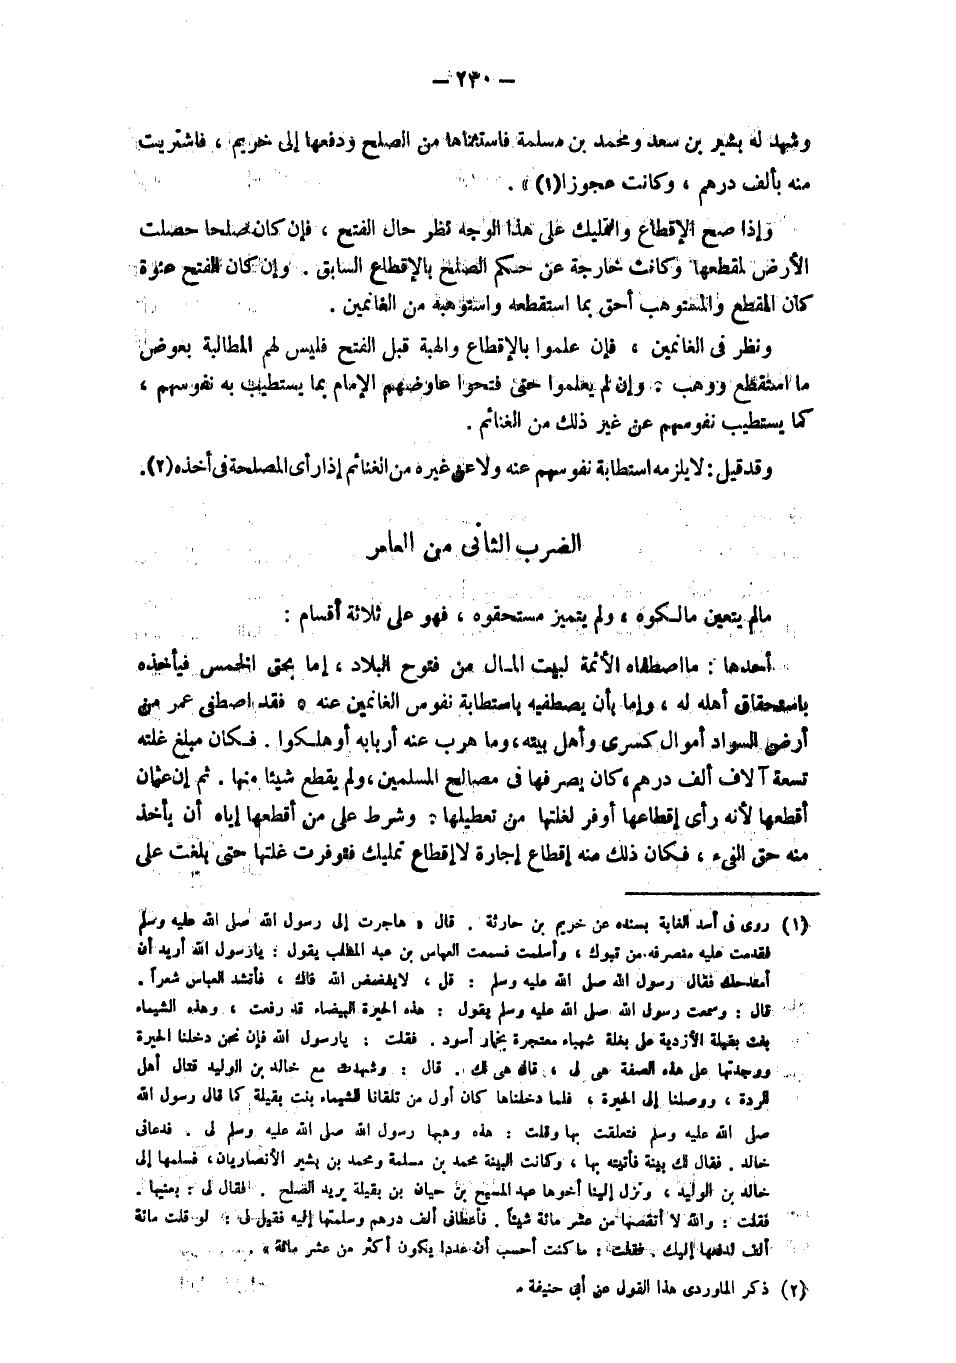 — ٢٣٠ —
وشهد له بشير بن سعد ومحمد بن مسلمة فاستثناها من الصلح ودفعها إلى خريم ، فاشتريت
منه بألف درهم ، وكانت عجوزا(١) » .
وإذا صح الإقطاع والتمليك على هذا الوجه نظر حال الفتح ، فإن كان صلحا حصلت
الأرض لمقطعها وكانت خارجة عن حكم الصلح بالإقطاع السابق . وإن كان الفتح عنوة
كان المقطع والمستوهب أحق بما استقطعه واستوهبه من الغانمين .
ونظر فى الغانمين ، فإن علموا بالإقطاع والهبة قبل الفتح فليس لهم المطالبة بعوض
ما استقطع ووهب ، وإن لم يعلموا حتى فتحوا عاوضهم الإمام بما يستطيب به نفوسهم ،
كما يستطيب نفوسهم عن غير ذلك من الغنائم .
وقد قيل : لا يلزمه استطابة نفوسهم عنه ولا عن غيره من الغنائم إذا رأى المصلحة فى أخذه(٢).
الضرب الثانى من العامر
مالم يتعين مالكوه ، ولم يتميز مستحقوه ، فهو على ثلاثة أقسام :
أحدها : ما اصطفاه الأئمة لبيت المال من فتوح البلاد ، إما بحق الخمس فيأخذه
باستحقاق أهله له ، وإما بأن يصطفيه باستطابة نفوس الغانمين عنه ، فقد اصطفى عمر من
أرض السواد أموال كسرى وأهل بيته، وما هرب عنه أربابه أو هلكوا . فكان مبلغ غلته
تسعة آلاف ألف درهم، كان يصرفها فى مصالح المسلمين، ولم يقطع شيئا منها . ثم إن عثمان
أقطعها لأنه رأى إقطاعها أوفر لغلتها من تعطيلها ، وشرط على من أقطعها إياه أن يأخذ
منه حق الفىء ، فكان ذلك منه إقطاع إجارة لا إقطاع تمليك فتوفرت غلتها حتى بلغت على
(١) روى فى أسد الغابة بسنده عن خريم بن حارثة . قال « هاجرت إلى رسول الله صلى الله عليه وسلم
فقدمت عليه منصرفه من تبوك ، وأسلمت فسمعت العباس بن عبد المطلب يقول : يا رسول الله أريد أن
أمتدحك فقال رسول الله صلى الله عليه وسلم : قل ، لا يفضض الله فاك ، فأنشد العباس شعراً .
قال : وسمعت رسول الله صلى الله عليه وسلم يقول : هذه الحيرة البيضاء قد رفعت ، وهذه الشيماء
بنت بقيلة الأزدية على بغلة شهباء معتجرة بخمار أسود . فقلت : يا رسول الله فإن نحن دخلنا الحيرة
ووجدتها على هذه الصفة هى لى ، قال هى لك . قال : وشهدت مع خالد بن الوليد قتال أهل
الردة ، ووصلنا إلى الحيرة ، فلما دخلناها كان أول من تلقانا الشيماء بنت بقيلة كما قال رسول الله
صلى الله عليه وسلم فتعلقت بها وقلت : هذه وهبها رسول الله صلى الله عليه وسلم لى . فدعانى
خالد . فقال لك بينة فأتيته بها ، وكانت البينة محمد بن مسلمة ومحمد بن بشير الأنصاريان، فسلمها إلى
خالد بن الوليد ، ونزل إلينا أخوها عبد المسيح بن حيان بن بقيلة يريد الصلح . فقال لى : بعنيها .
فقلت : والله لا أنقصها من عشر مائة شيئاً . فأعطانى ألف درهم وسلمتها إليه فقيل لى : لو قلت مائة
ألف لدفعها إليك . فقلت : ما كنت أحسب أن عددا يكون أكثر من عشر مائة »
(٢) ذكر الماوردى هذا القول عن أبى حنيفة .